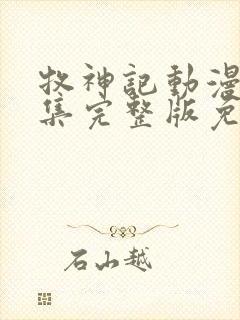 牧神記動漫
集完整版免
石山越